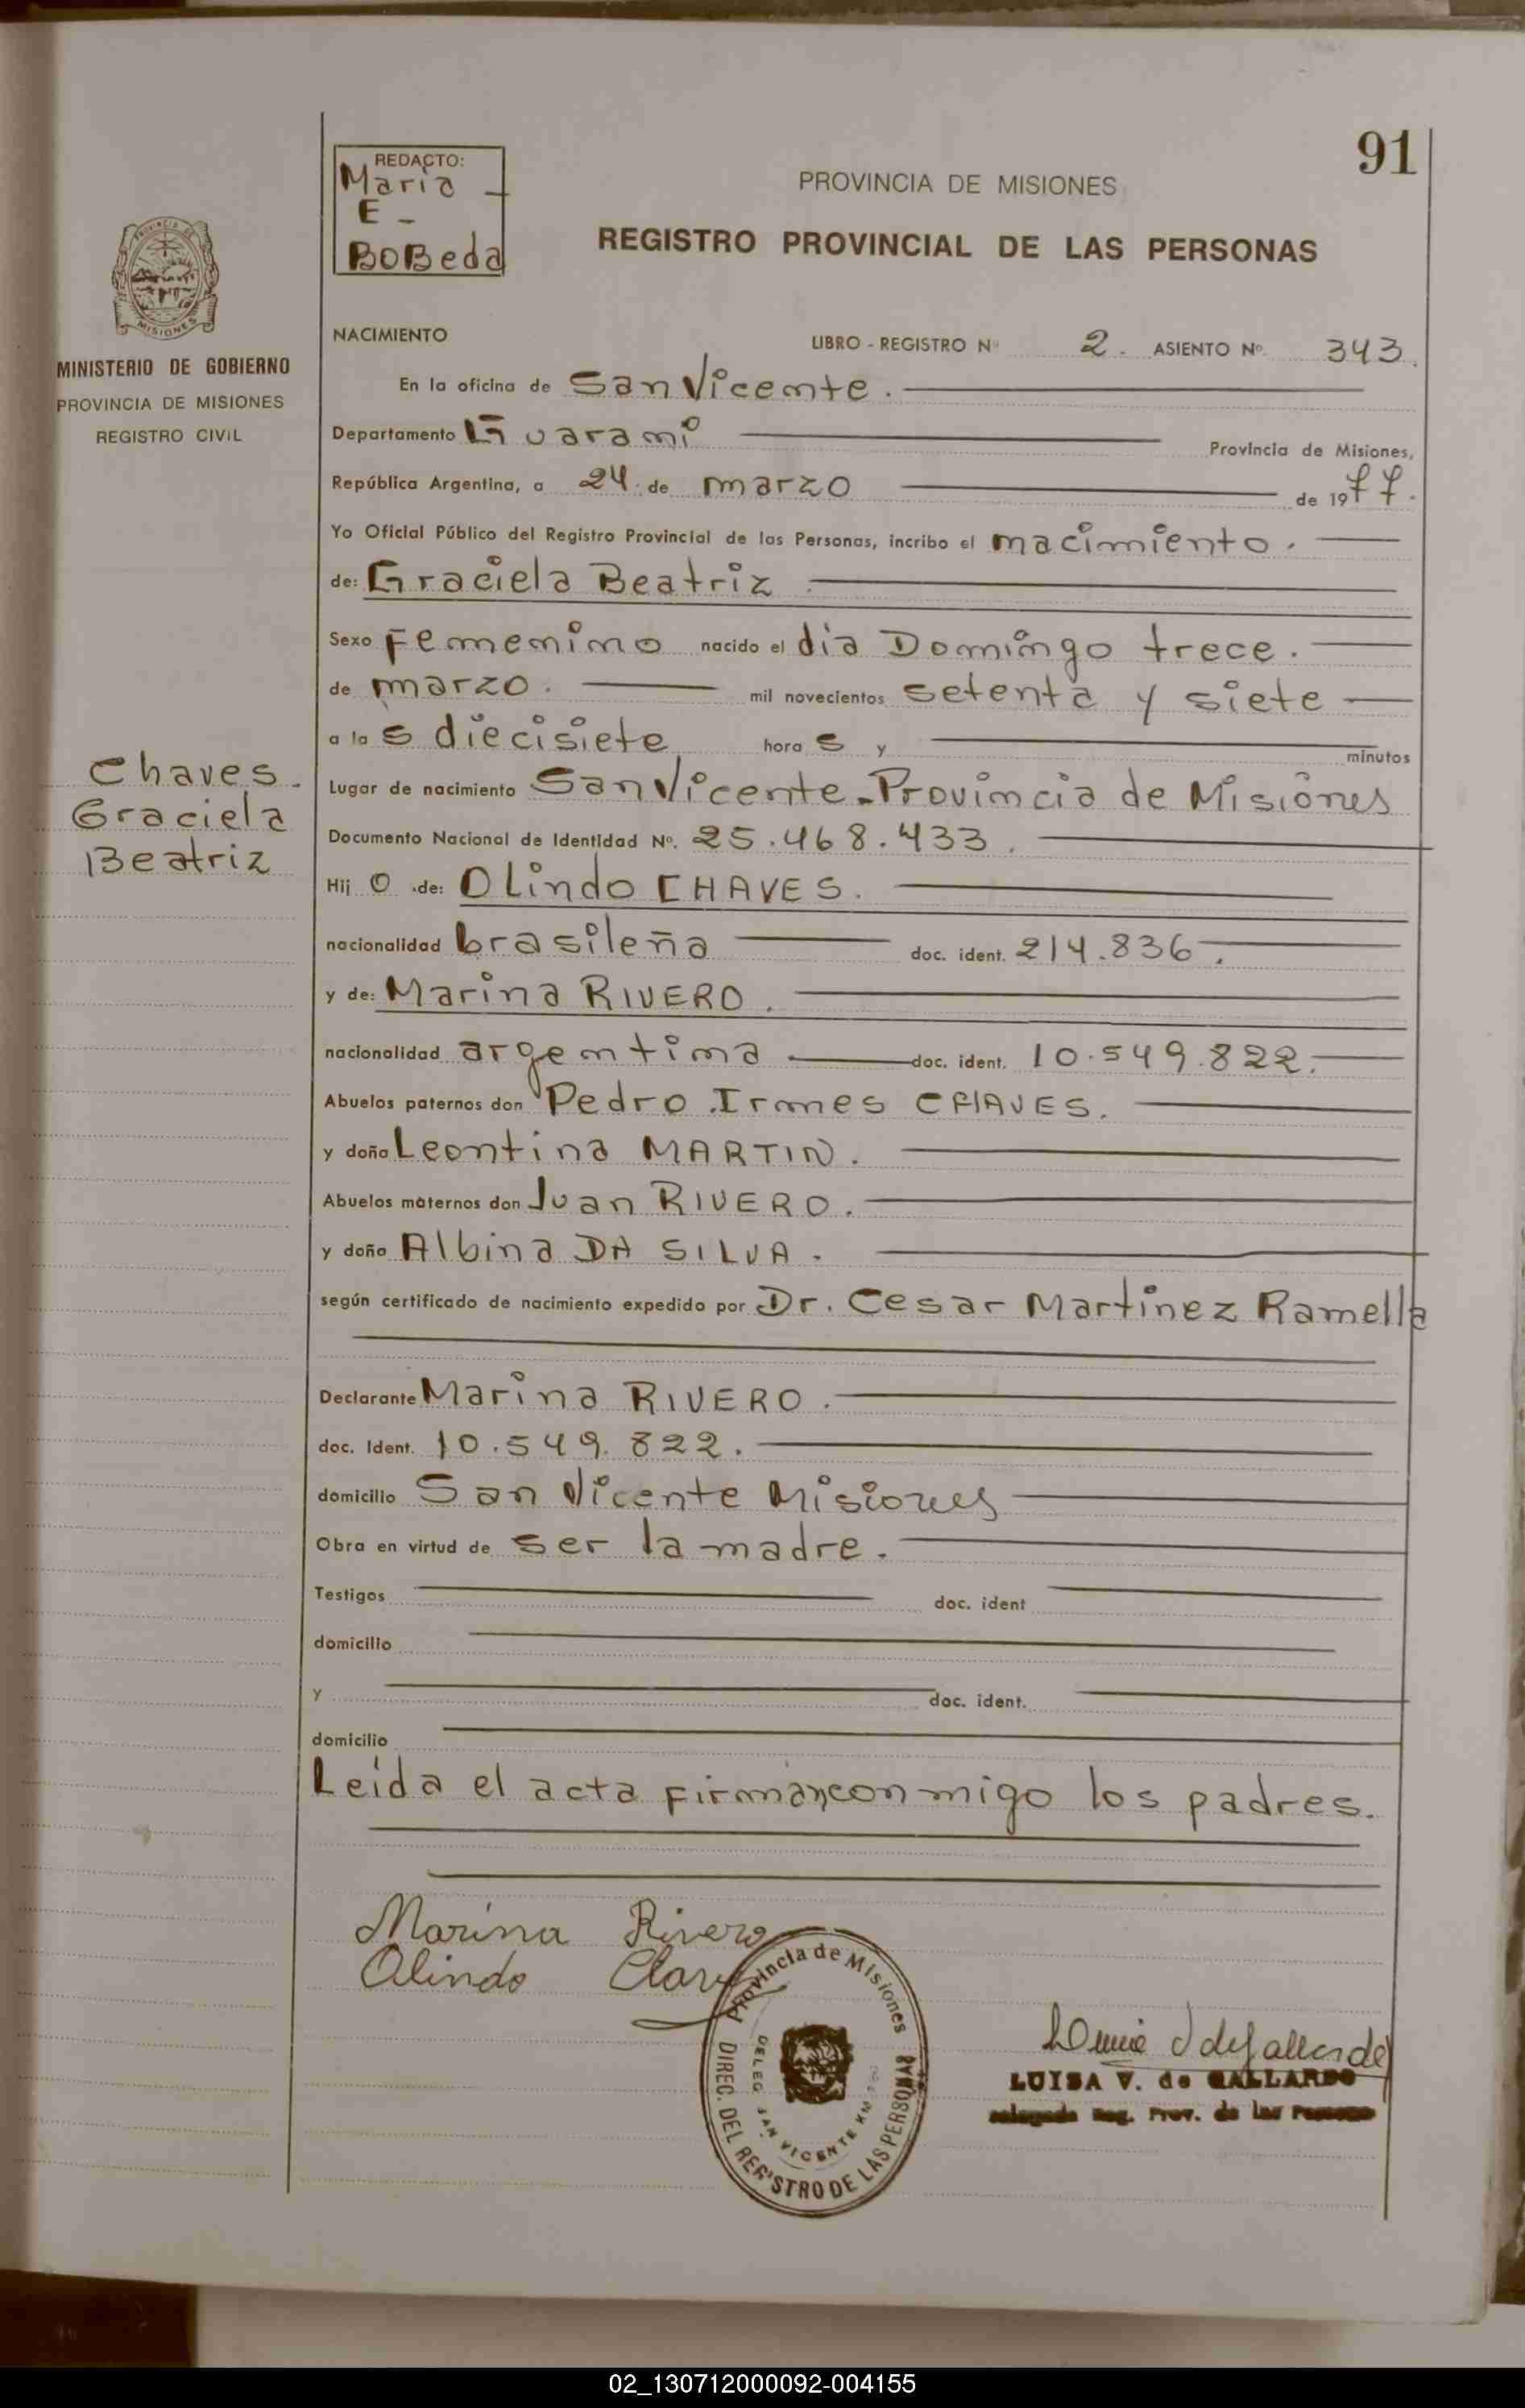 91
REDACTO:
Maria
E -
BOBeda
PROVINCIA DE MISIONES
REGISTRO PROVINCIAL DE LAS PERSONAS
PROVINCIA DE
MISIONES
MINISTERIO DE GOBIERNO
PROVINCIA DE MISIONES
REGISTRO CIVIL
NACIMIENTO LIBRO - REGISTRO Nº 2. ASIENTO Nº 343.
En la oficina de San Vicente.
Departamento Guarani Provincia de Misiones,
República Argentina, a 24 de marzo de 1977.
Yo Oficial Público del Registro Provincial de las Personas, incribo el nacimiento.
de: Graciela Beatriz
Sexo Femenino nacido el dia Domingo trece.
de marzo. mil novecientos setenta y siete
a la s diecisiete hora s y minutos
Chaves
Graciela
Beatriz
Lugar de nacimiento San Vicente - Provincia de Misiones
Documento Nacional de Identidad Nº. 25.468.433.
Hij o de: OLindo CHAVES.
nacionalidad brasileña doc. ident. 214.836.
y de: Marina RIVERO.
nacionalidad argentina doc. ident. 10.549.822.
Abuelos paternos don Pedro Irones CHAVES.
y doña Leontina MARTIN.
Abuelos maternos don Juan RIVERO.
y doña Albina DA SILVA.
según certificado de nacimiento expedido por Dr. Cesar Martinez Ramella
Declarante Marina RIVERO.
doc. Ident. 10.549.822.
domicilio San Vicente Misiones
Obra en virtud de ser la madre.
Testigos doc. ident
domicilio
y doc. ident.
domicilio
Leída el acta firman conmigo los padres.
Marina Rivero
Olindo Claves
Provincia de Misiones
DIREC. DEL REGISTRO DE LAS PERSONAS
DELEG. SAN VICENTE KM
LUISA V. de GALLARDO
Delegada Reg. Prov. de las Personas
02_130712000092-004155